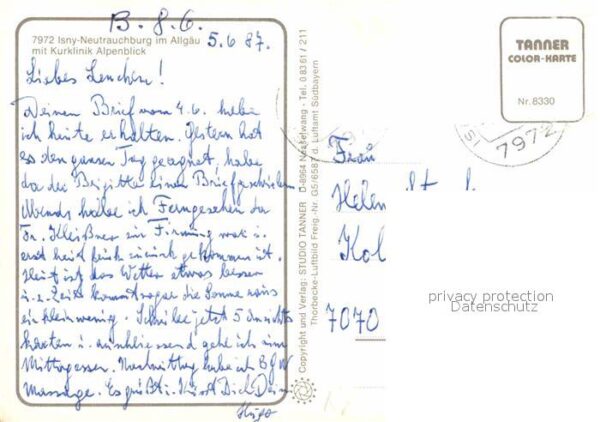 B. 8. 6.
7972 Isny-Neutrauchburg im Allgäu
mit Kurklinik Alpenblick
5.6 87.
Liebes Lenchen!
Deinen Brief vom 4.6. habe
ich heute erhalten. Gestern hat
es den ganzen Tag geregnet, habe
da der Brigitte einen Brief geschrieben
Abends habe ich Ferngesehen da
Fr. Kleißner zur Firmung war u.
erst heut früh zurück gekommen ist.
Heut ist das Wetter etwas besser
z. Zeit kommt sogar die Sonne raus
ein klein wenig. Schreibe jetzt 5 Ansichts
karten u. anschliessend gehe ich zum
Mittagessen. Nachmittag habe ich BGW
Massage. Es grüßt u. küsst Dich Dein
Hugo
Copyright und Verlag: STUDIO TANNER · D-8964 Nesselwang · Tel. 0 83 61 / 211
Thorbecke-Luftbild Freig.-Nr. G5/6587 d. Luftamt Südbayern
TANNER
COLOR-KARTE
Nr. 8330
7972
7972
Frau
Helen
Kol
7070
privacy protection
Datenschutz